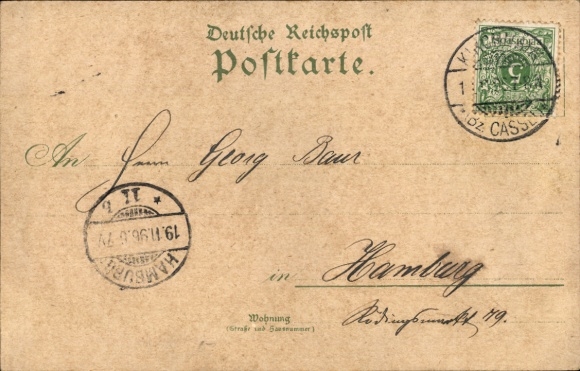 Deutsche Reichspost
Postkarte.
5
Bz CASSEL
An Herrn Georg Baur
19.11.96.6-7V
HAMBURG
in Hamburg
Wohnung
(Straße und Hausnummer)
Rödingsmarkt 79.